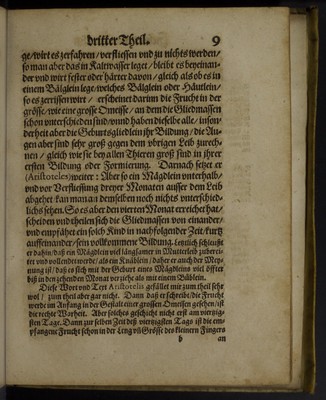 dritter Theil. 9
ge/ wirt es zerfahren/ verfliessen vnd zu nichts werden/
so man aber das in Kaltwasser leget/ bleibt es beyeinan-
der vnd wirt fester oder härter davon/ gleich als ob es in
einem Bälglein lege/ welches Bälglein oder Häutlein/
so es zerrissen wirt / erscheinet darinn die Frucht in der
grösse/ wie eine grosse Omeisse/ an dem die Gliedmassen
schon vnterschieden sind/ vnnd haben dieselbe alle/ inson-
derheit aber die Geburtsgliedlein ihr Bildung/ die Au-
gen aber sind sehr groß gegen dem vbrigen Leib zurech-
nen/ gleich wie sie bey allen Thieren groß sind in ihrer
ersten Bildung oder Formierung. Darnach setzet er
(Aristoteles) weiter: Aber so ein Mägdlein vnterhalb/
vnd vor Verfliessung dreyer Monaten ausser dem Leib
abgehet kan man an demselben noch nichts vnterschied-
lichs sehen. So es aber den vierten Monat erreichet hat/
scheiden vnd theilen sich die Gliedmassen von einander/
vnd empfähet ein solch Kind in nachfolgender Zeit/ kurtz
auffeinander/ sein vollkommene Bildung. Letztlich schleußt
er dahin/ daß ein Mägdlein viel langsamer in Mutterleid zuberei-
tet vnd vollendet werde/ als ein Knäblein/ daher er auch der Mey-
nung ist/ daß es sich mit der Geburt eines Mägdleins viel öffter
biß in den zehenden Monat verziehe als mit einem Büblein.
Diese Wort vnd Text Aristotelis gefället mir zum theil sehr
wol/ zum theil aber gar nicht. Dann daß er schreibt/ die Frucht
werde im Anfang in der Gestalt einer grossen Omeissen gesehen/ ist
die rechte Warheit. Aber solches geschicht nicht erst am viertzig-
sten Tage. Dann zur selben Zeit deß viertzigsten Tags ist die em-
pfangene Frucht schon in der Leng vñ Grösse des kleinern Fingers
b an